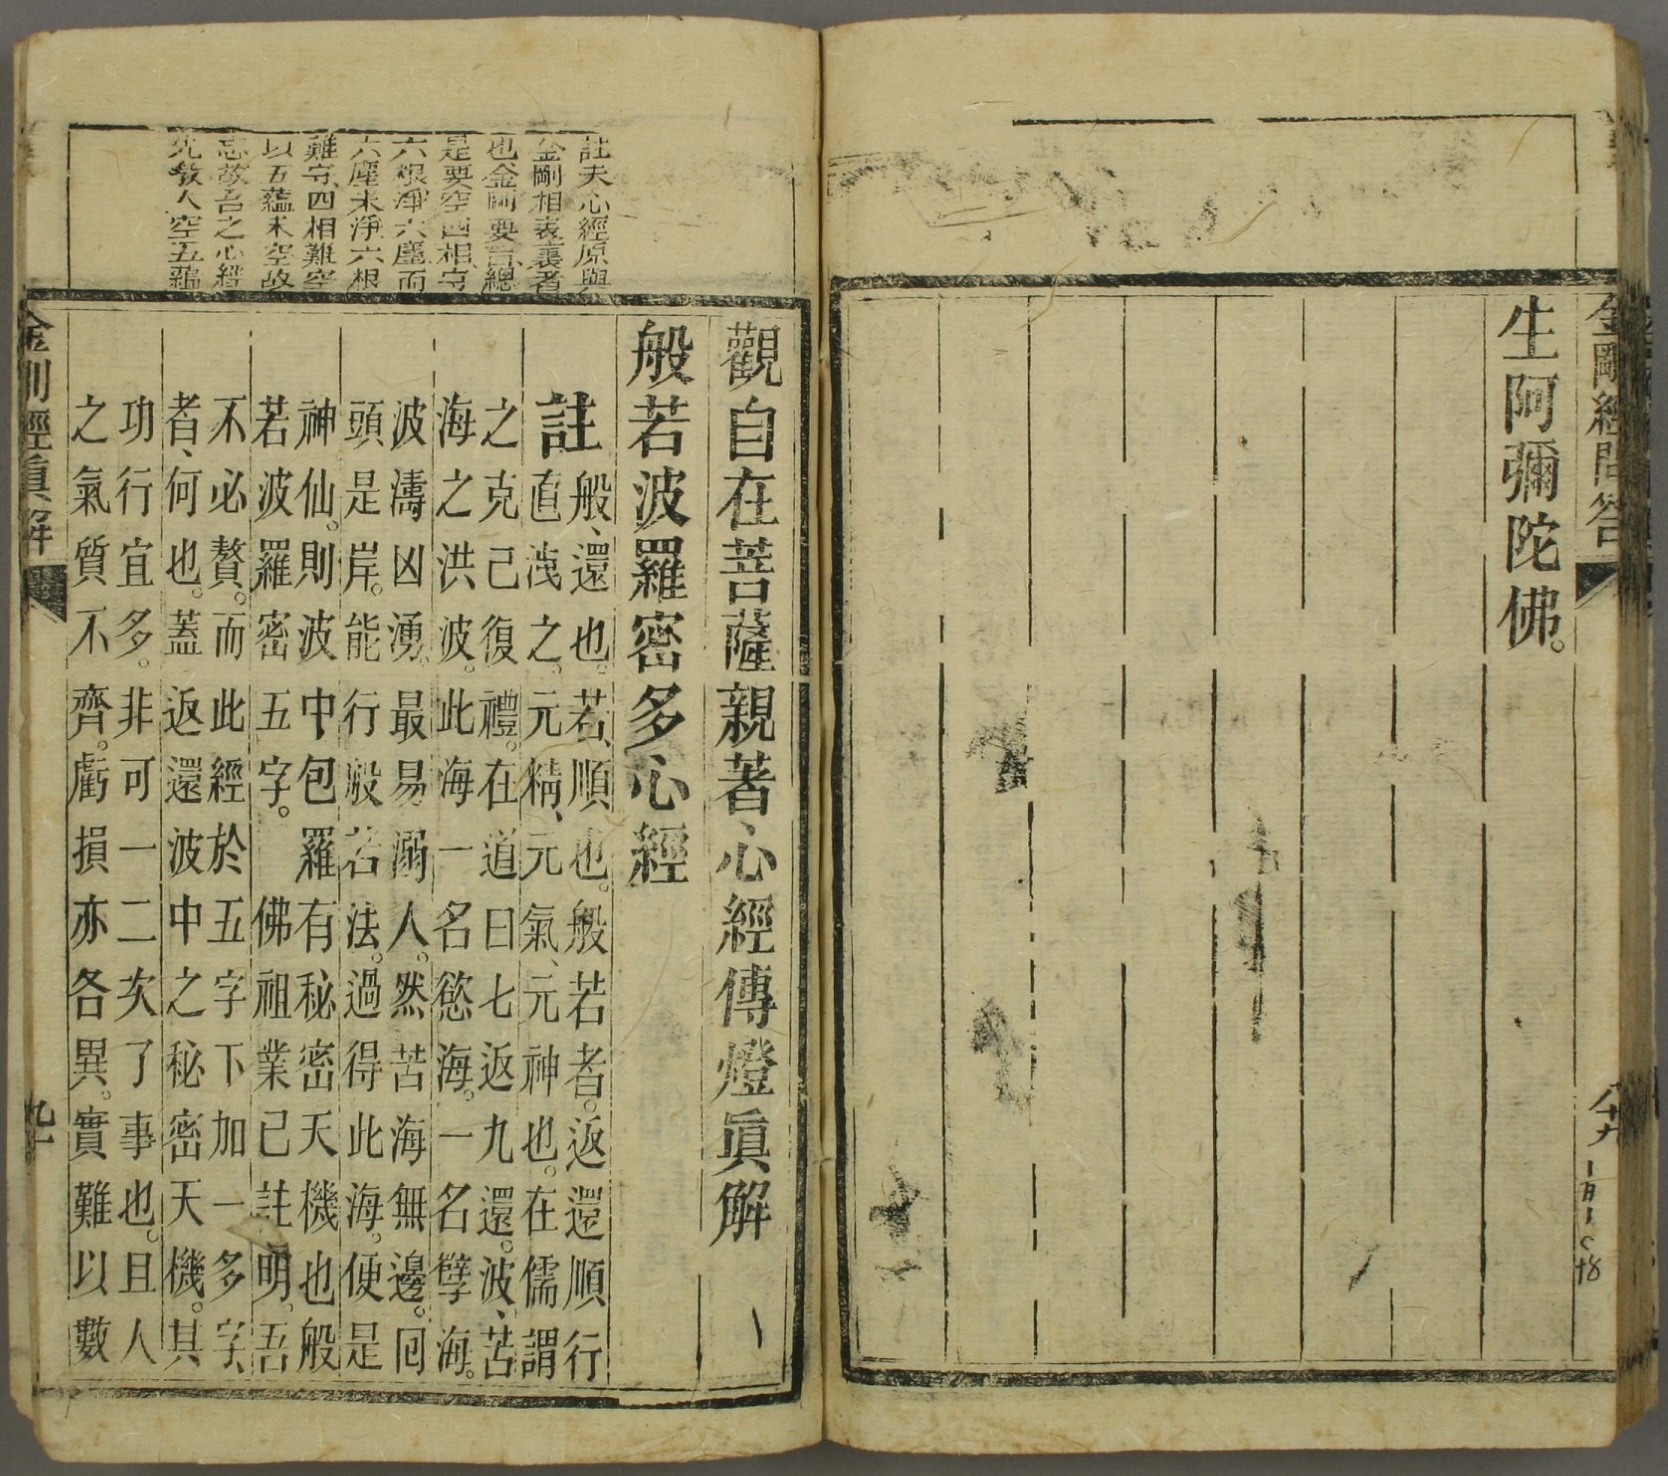 金剛經問答
生阿彌陀佛。
觀自在菩薩親著心經傳燈眞解
般若波羅密多心經
註
般、還也。若、順也。般若者。返還順行
直洩之。元精、元氣、元神也。在儒謂
之克己復禮。在道曰七返九還。波、苦
海之洪波。此海一名慾海。一名孽海。
波濤凶湧。最易溺人。然苦海無邊。回
頭是岸。能行般若法。過得此海。便是
神仙。則波中包羅有秘密天機也般
若波羅密五字。佛祖業已註明。吾
不必贅。而此經於五字下加一多字、
者、何也。蓋返還波中之秘密天機。其
功行宜多。非可一二次了事也。且人
之氣質不齊。虧損亦各異。實難以數
註夫心經原與
金剛相表裏者
也金剛要言總
是要空四相、守
六根淨六塵而
六塵未淨六根
難守、四相難空
以五蘊未空故
忘故吾之心經
先教人空五蘊
金剛經眞解